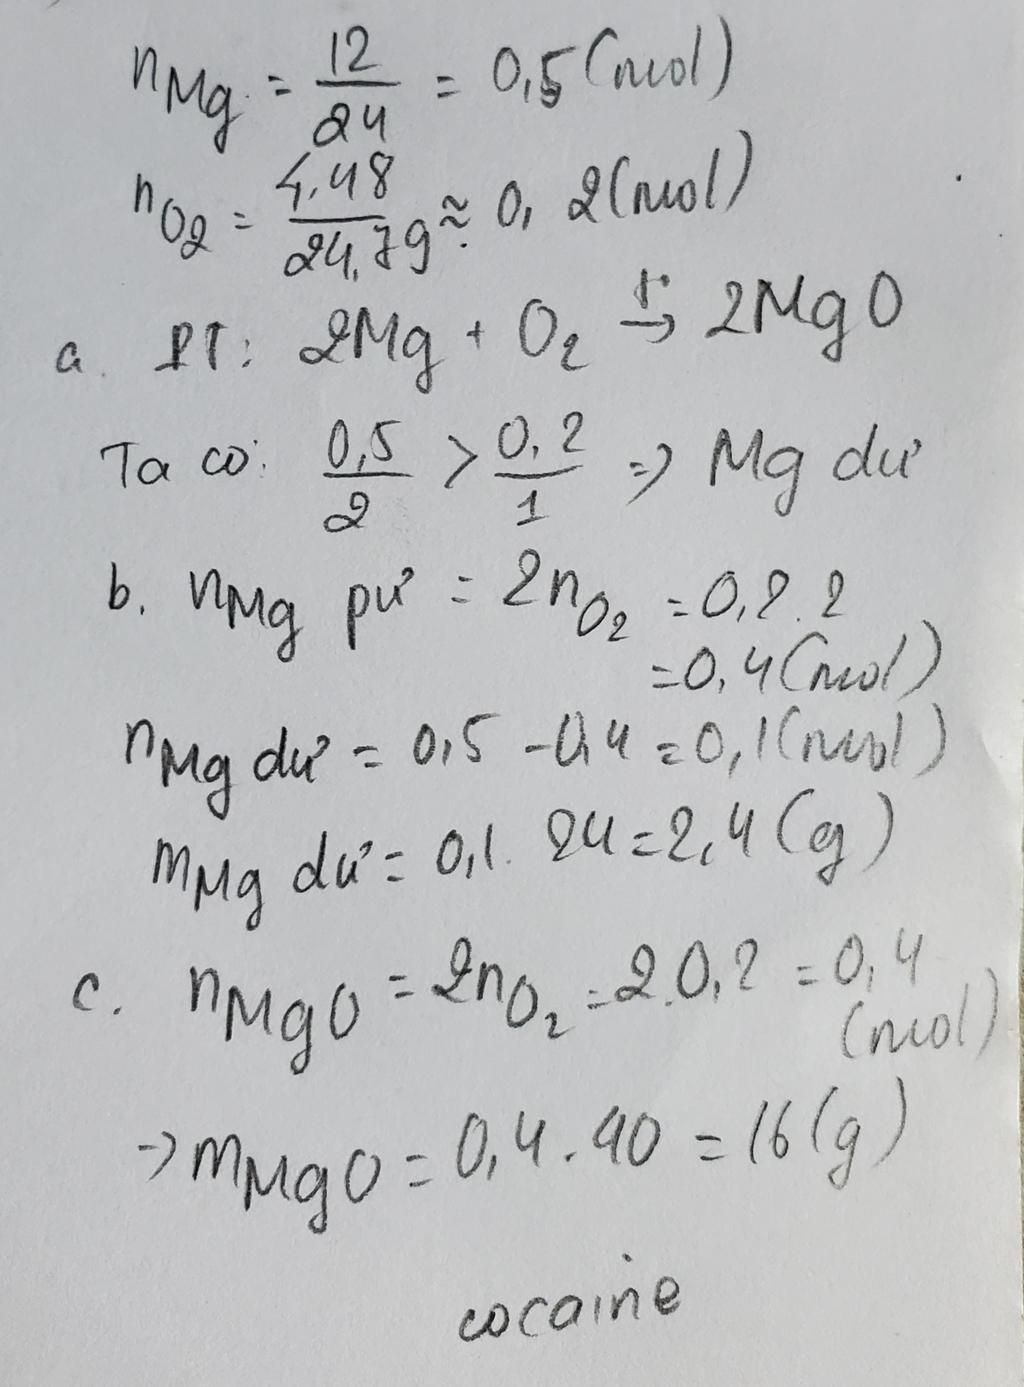 nMg = 12/24 = 0,5 (mol)
nO2 = 4,48/24,79 ≈ 0,2 (mol)
a. PT: 2Mg + O2 t°→ 2MgO
Ta có: 0,5/2 > 0,2/1 => Mg dư
b. nMg pư = 2nO2 = 0,2.2
= 0,4 (mol)
nMg dư = 0,5 - 0,4 = 0,1 (mol)
mMg dư = 0,1. 24 = 2,4 (g)
c. nMgO = 2nO2 = 2.0,2 = 0,4
(mol)
-> mMgO = 0,4.40 = 16 (g)
cocaine